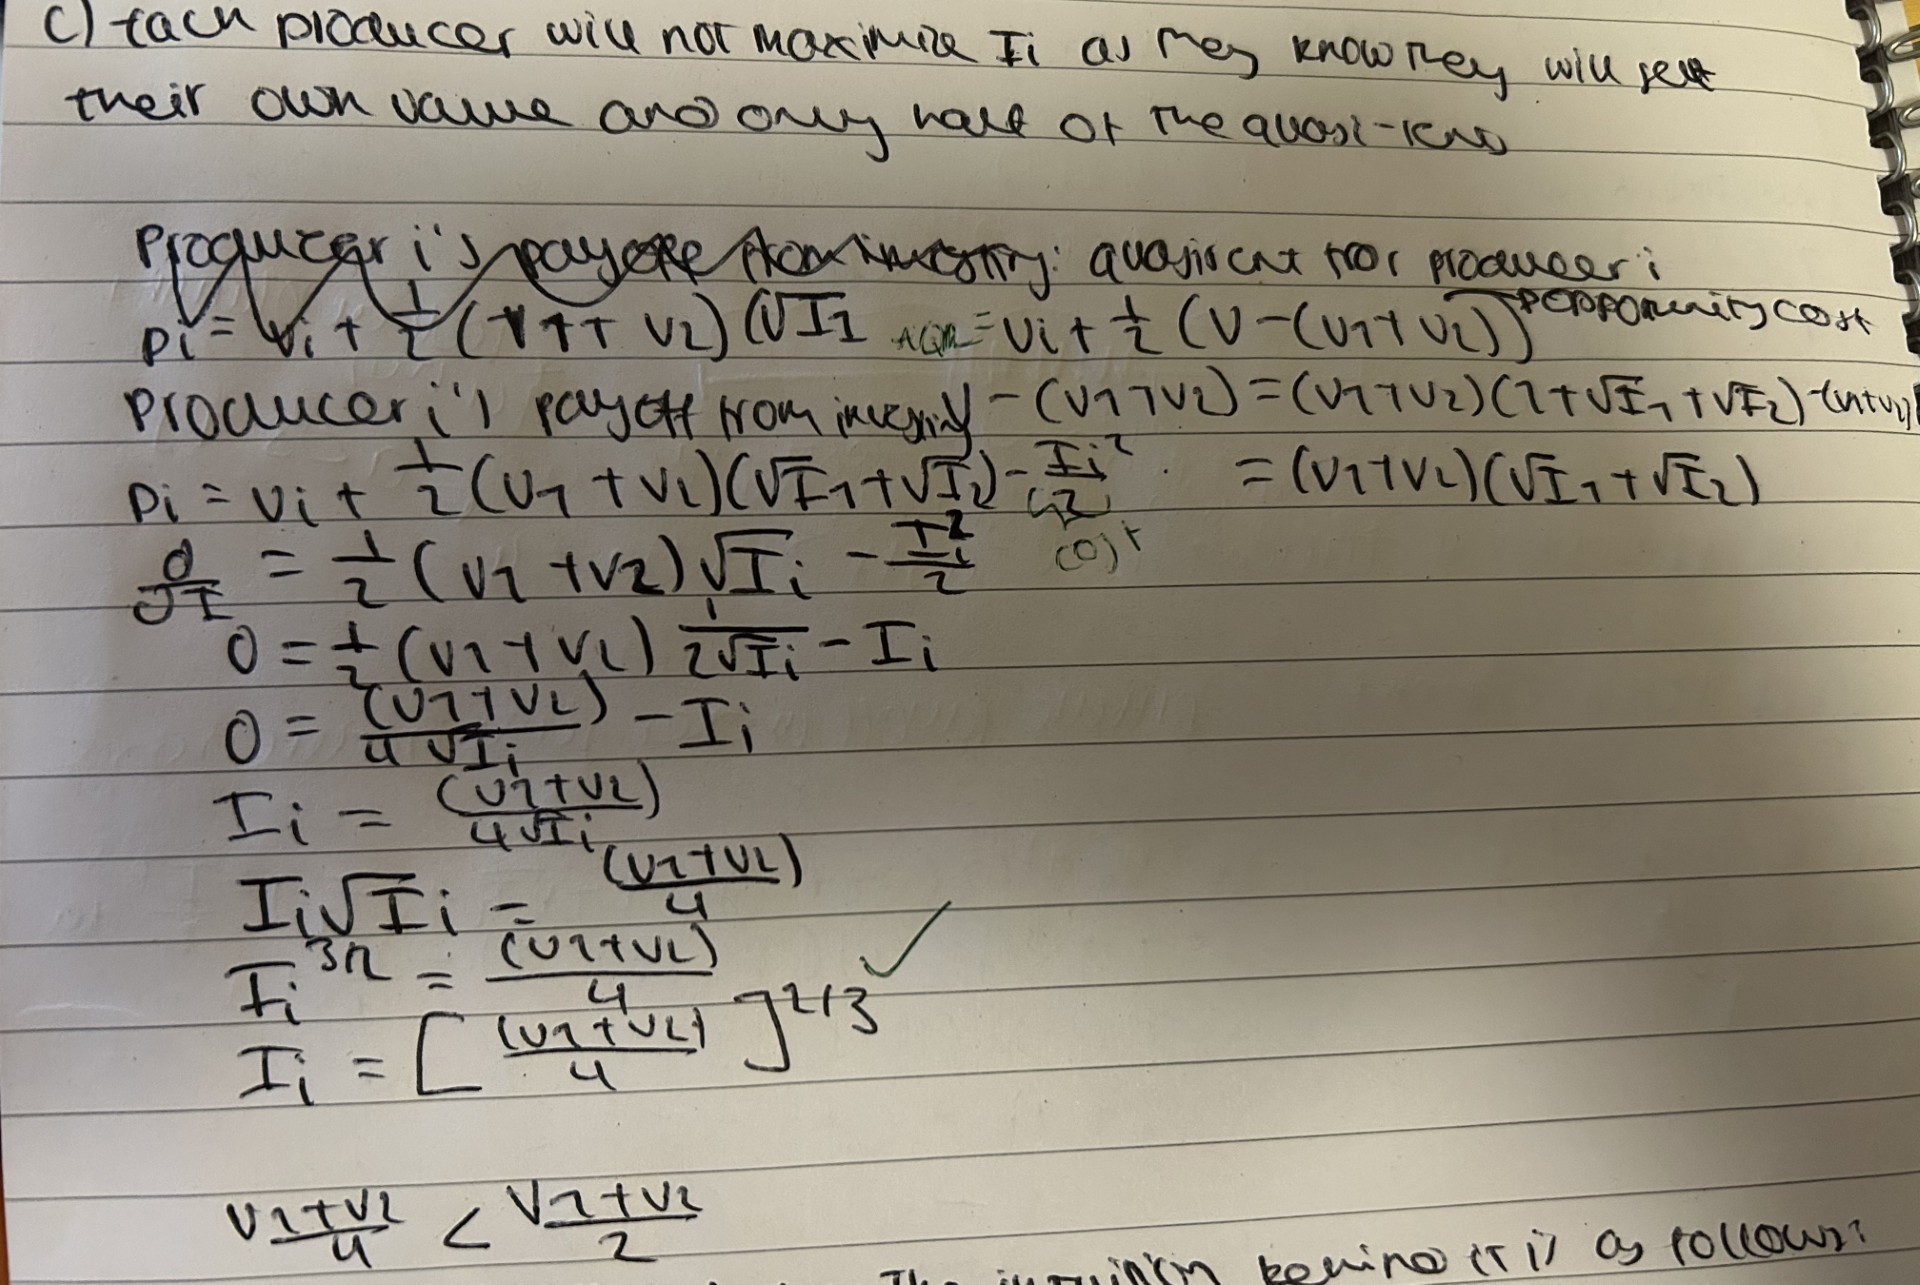 c) Each producer will not maximize Ii as they know they will get
their own value and only half of the quasi-rent
Producer i's payoff from investing: quasirent for producer i
pi = vi + 1/2 (v1 + v2) (√I1 AQR = vi + 1/2 (V - (v1 + v2)) opportunity cost
Producer i's payoff from investing V - (v1 + v2) = (v1 + v2)(1 + √I1 + √I2) - (v1 + v2)
pi = vi + 1/2 (v1 + v2)(√I1 + √I2) - Ii²/2 = (v1 + v2)(√I1 + √I2)
cost
d/dI = 1/2 (v1 + v2) √Ii - Ii²/2
0 = 1/2 (v1 + v2) 1/2√Ii - Ii
0 = (v1 + v2)/4√Ii - Ii
Ii = (v1 + v2)/4√Ii
Ii√Ii = (v1 + v2)/4
Ii^3/2 = (v1 + v2)/4 ✓
Ii = [(v1 + v2)/4]^2/3
v1 + v2/4 < v1 + v2/2
The intuition behind it is as follows: